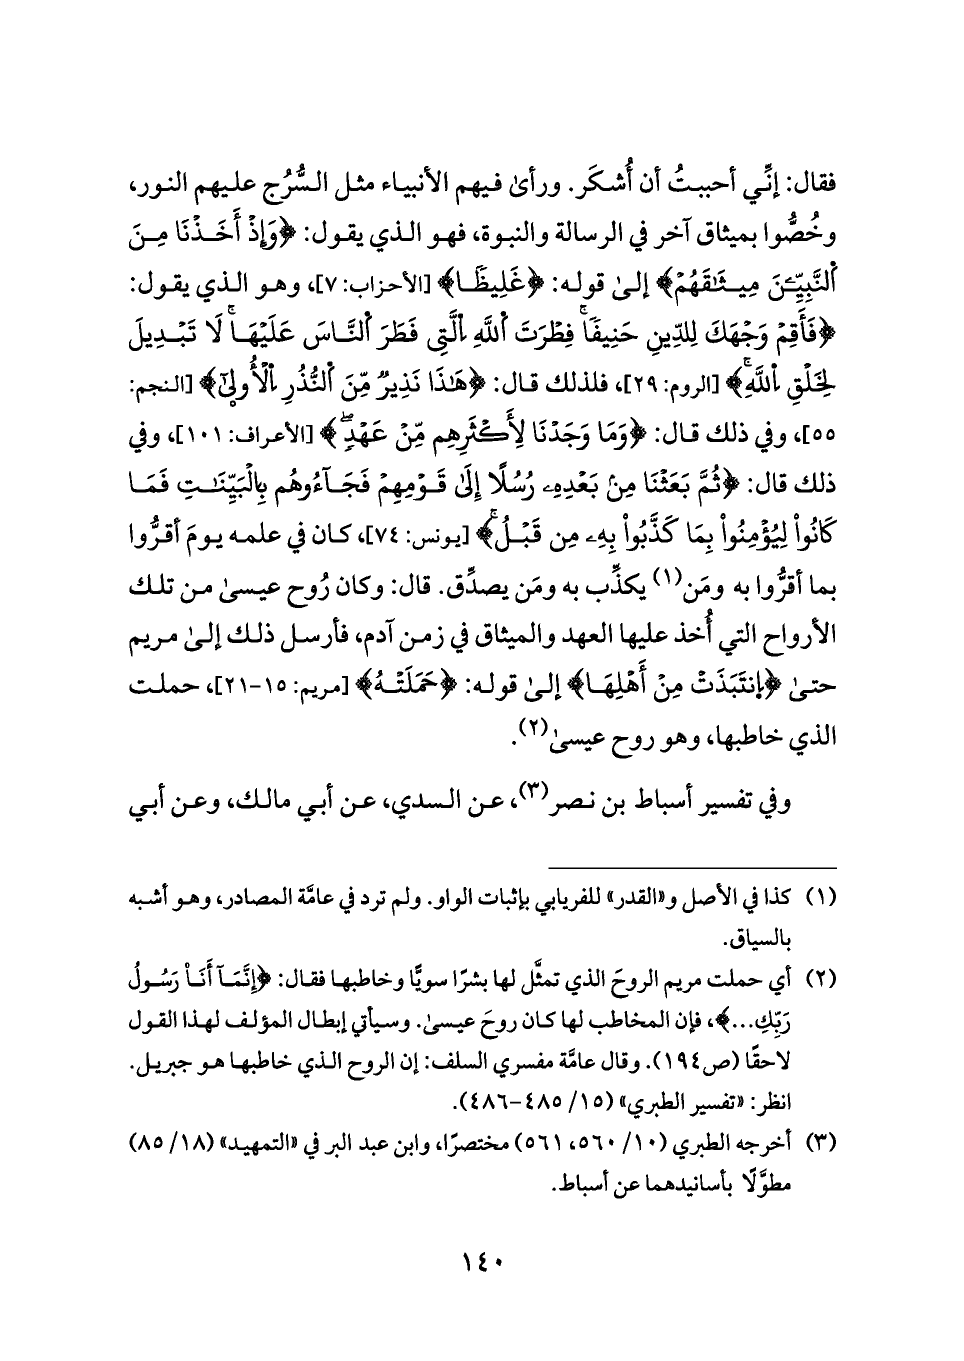 فقال: إنِّي أحببتُ أن أُشكَر. ورأىٰ فيهم الأنبياء مثل السُّرُج عليهم النور،
وخُصُّوا بميثاق آخر في الرسالة والنبوة، فهو الذي يقول: ﴿وَإِذْ أَخَذْنَا مِنَ
اَ۬لنَّبِيِّـۧنَ مِيثَٰقَهُمْ﴾ إلىٰ قوله: ﴿غَلِيظًا﴾ [الأحزاب: ٧]، وهو الذي يقول:
﴿فَأَقِمْ وَجْهَكَ لِلدِّينِ حَنِيفًاۚ فِطْرَتَ اَ۬للَّهِ اِ۬لَّتِي فَطَرَ اَ۬لنَّاسَ عَلَيْهَاۚ لَا تَبْدِيلَ
لِخَلْقِ اِ۬للَّهِۚ﴾ [الروم: ٢٩]، فلذلك قال: ﴿هَٰذَا نَذِيرٌ مِّنَ اَ۬لنُّذُرِ اِ۬لْأُولٜيٰٓ﴾ [النجم:
٥٥]، وفي ذلك قال: ﴿وَمَا وَجَدْنَا لِأَكْثَرِهِم مِّنْ عَهْدٖۖ﴾ [الأعراف: ١٠١]، وفي
ذلك قال: ﴿ثُمَّ بَعَثْنَا مِنۢ بَعْدِهِۦ رُسُلًا إِلَىٰ قَوْمِهِمْ فَجَآءُوهُم بِالْبَيِّنَٰتِ فَمَا
كَانُواْ لِيُؤْمِنُواْ بِمَا كَذَّبُواْ بِهِۦ مِن قَبْلُۚ﴾ [يونس: ٧٤]، كان في علمه يومَ أقرُّوا
بما أقرُّوا به ومَن(١) يكذِّب به ومَن يصدِّق. قال: وكان رُوح عيسىٰ من تلك
الأرواح التي أُخذ عليها العهد والميثاق في زمن آدم، فأرسل ذلك إلىٰ مريم
حتىٰ ﴿اِ۪نتَبَذَتْ مِنْ أَهْلِهَا﴾ إلىٰ قوله: ﴿حَمَلَتْهُ﴾ [مريم: ١٥-٢١]، حملت
الذي خاطبها، وهو روح عيسىٰ(٢).
وفي تفسير أسباط بن نصر(٣)، عن السدي، عن أبي مالك، وعن أبي
(١) كذا في الأصل و«القدر» للفريابي بإثبات الواو. ولم ترد في عامَّة المصادر، وهو أشبه
بالسياق.
(٢) أي حملت مريم الروحَ الذي تمثَّل لها بشرًا سويًّا وخاطبها فقال: ﴿إِنَّمَآ أَنَا۠ رَسُولُ
رَبِّكِ...﴾، فإن المخاطب لها كان روحَ عيسىٰ. وسيأتي إبطال المؤلف لهذا القول
لاحقًا (ص١٩٤). وقال عامَّة مفسري السلف: إن الروح الذي خاطبها هو جبريل.
انظر: «تفسير الطبري» (١٥/ ٤٨٥-٤٨٦).
(٣) أخرجه الطبري (١٠/ ٥٦٠، ٥٦١) مختصرًا، وابن عبد البر في «التمهيد» (١٨/ ٨٥)
مطوَّلًا بأسانيدهما عن أسباط.
١٤٠